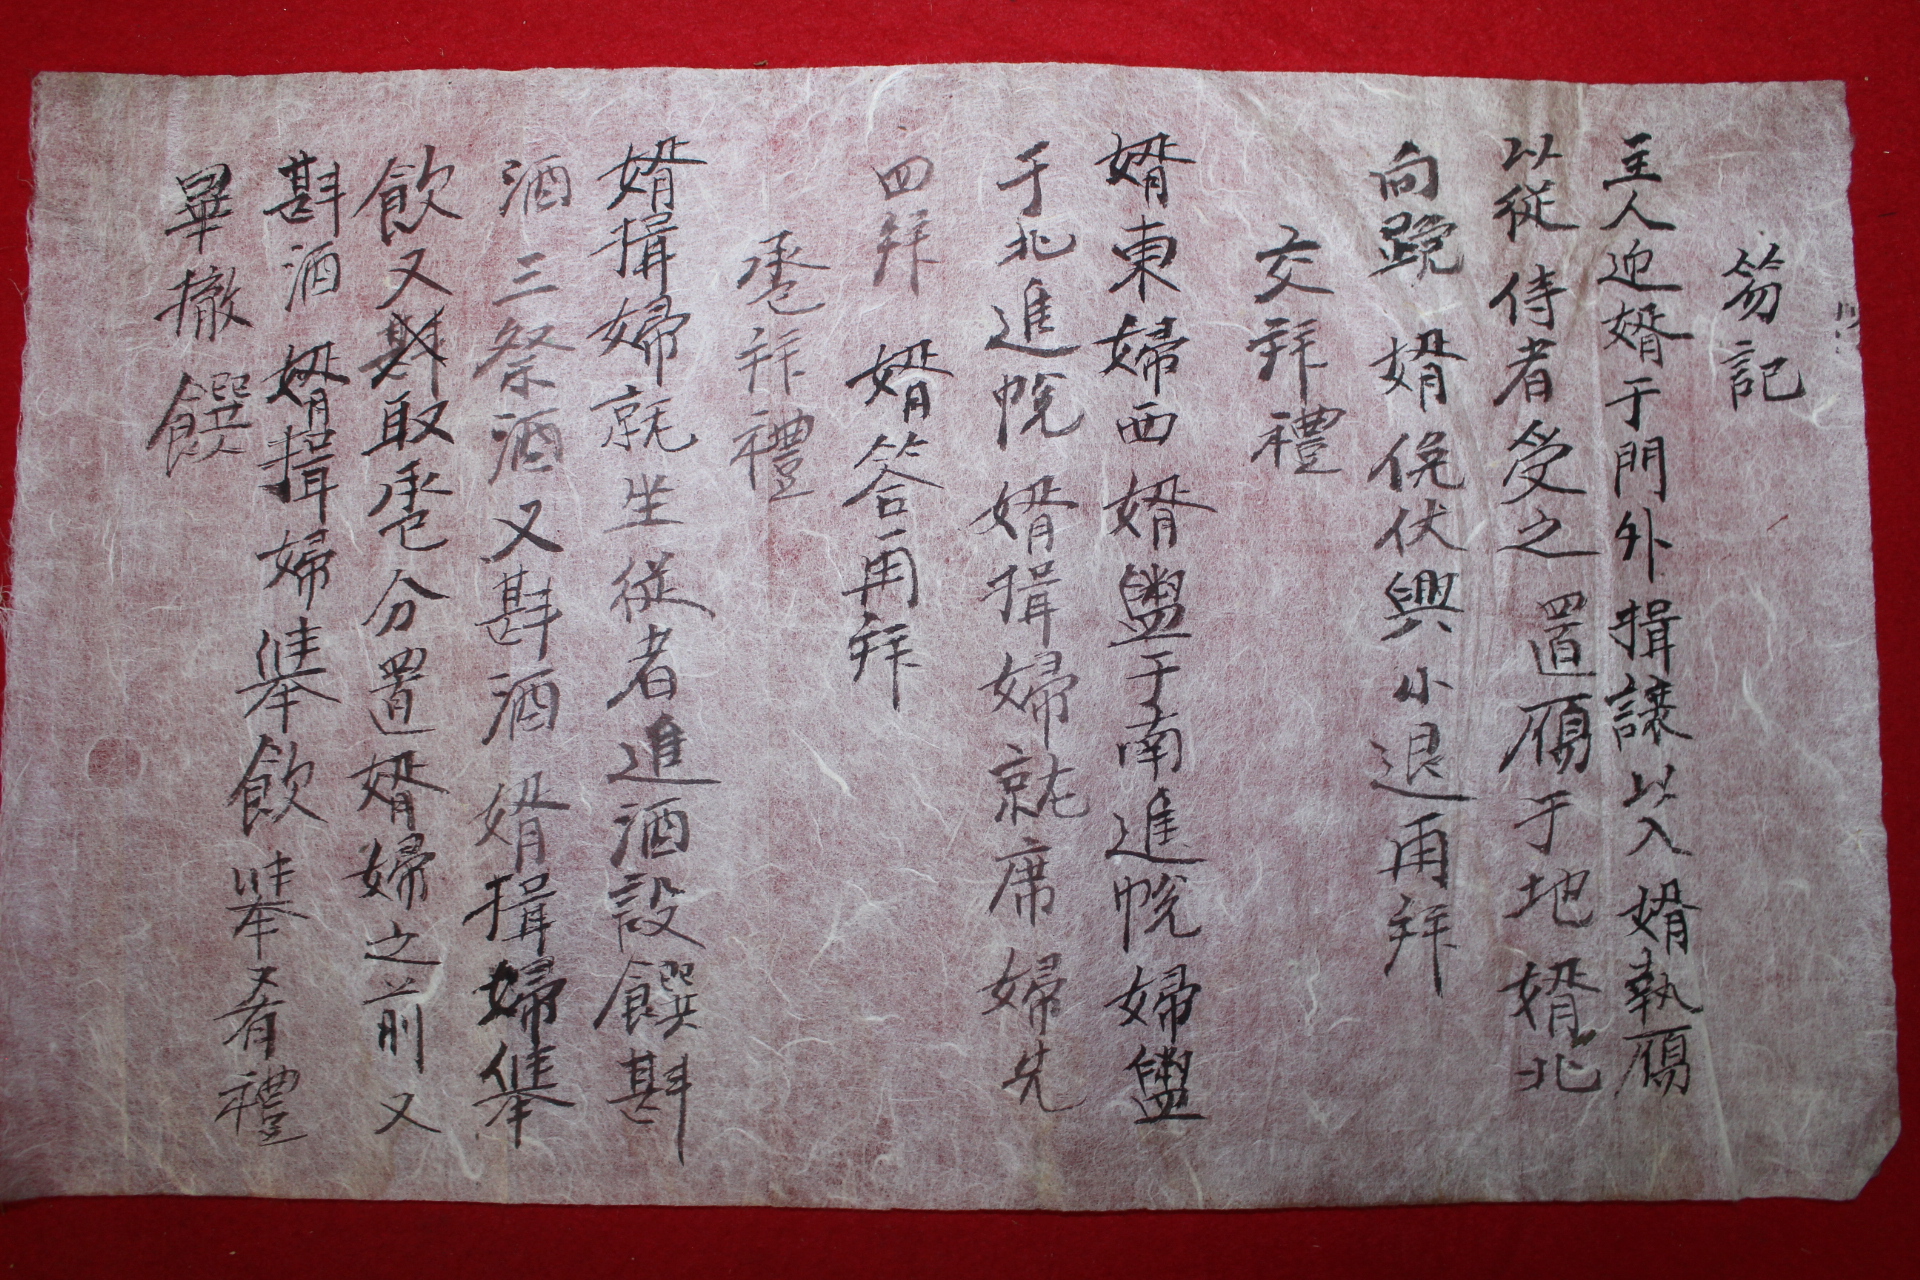 笏記
主人迎婿于門外揖讓以入 婿執鴈
以從 侍者受之 置鴈于地 婿北
向跪 婿俛伏興小退再拜
交拜禮
婿東婦西 婿盥于南進帨 婦盥
于北進帨 婿揖婦就席 婦先
四拜 婿答再拜
巹拜禮
婿揖婦就坐從者進酒設饌斟
酒三祭酒又斟酒 婿揖婦舉
飲又斟取巹分置婿婦之前 又
斟酒 婿揖婦舉飲舉肴禮
畢撤饌